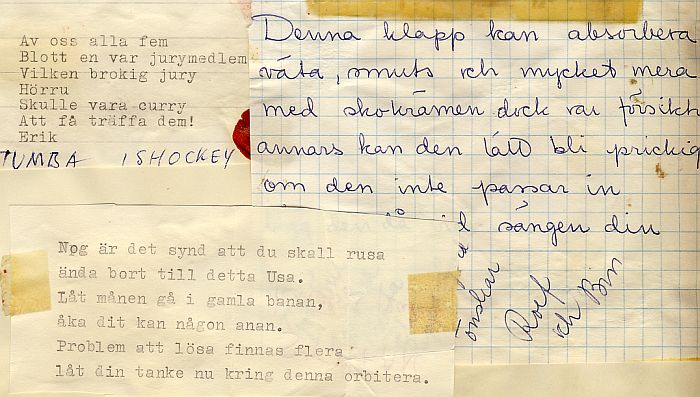 Av oss alla fem
Blott en var jurymedlem
Vilken brokig jury
Hörru
Skulle vara curry
Att få träffa dem!
Erik
TUMBA ISHOCKEY
Denna klapp kan absorbera
väta, smuts och mycket mera
med skokrämen dock var försikt
annars kan den lätt bli prickig
om den inte passar in
sången din
önskar
Rolf
och Bin
Nog är det synd att du skall rusa
ända bort till detta Usa.
Låt månen gå i gamla banan,
åka dit kan någon anan.
Problem att lösa finnas flera
låt din tanke nu kring denna orbitera.